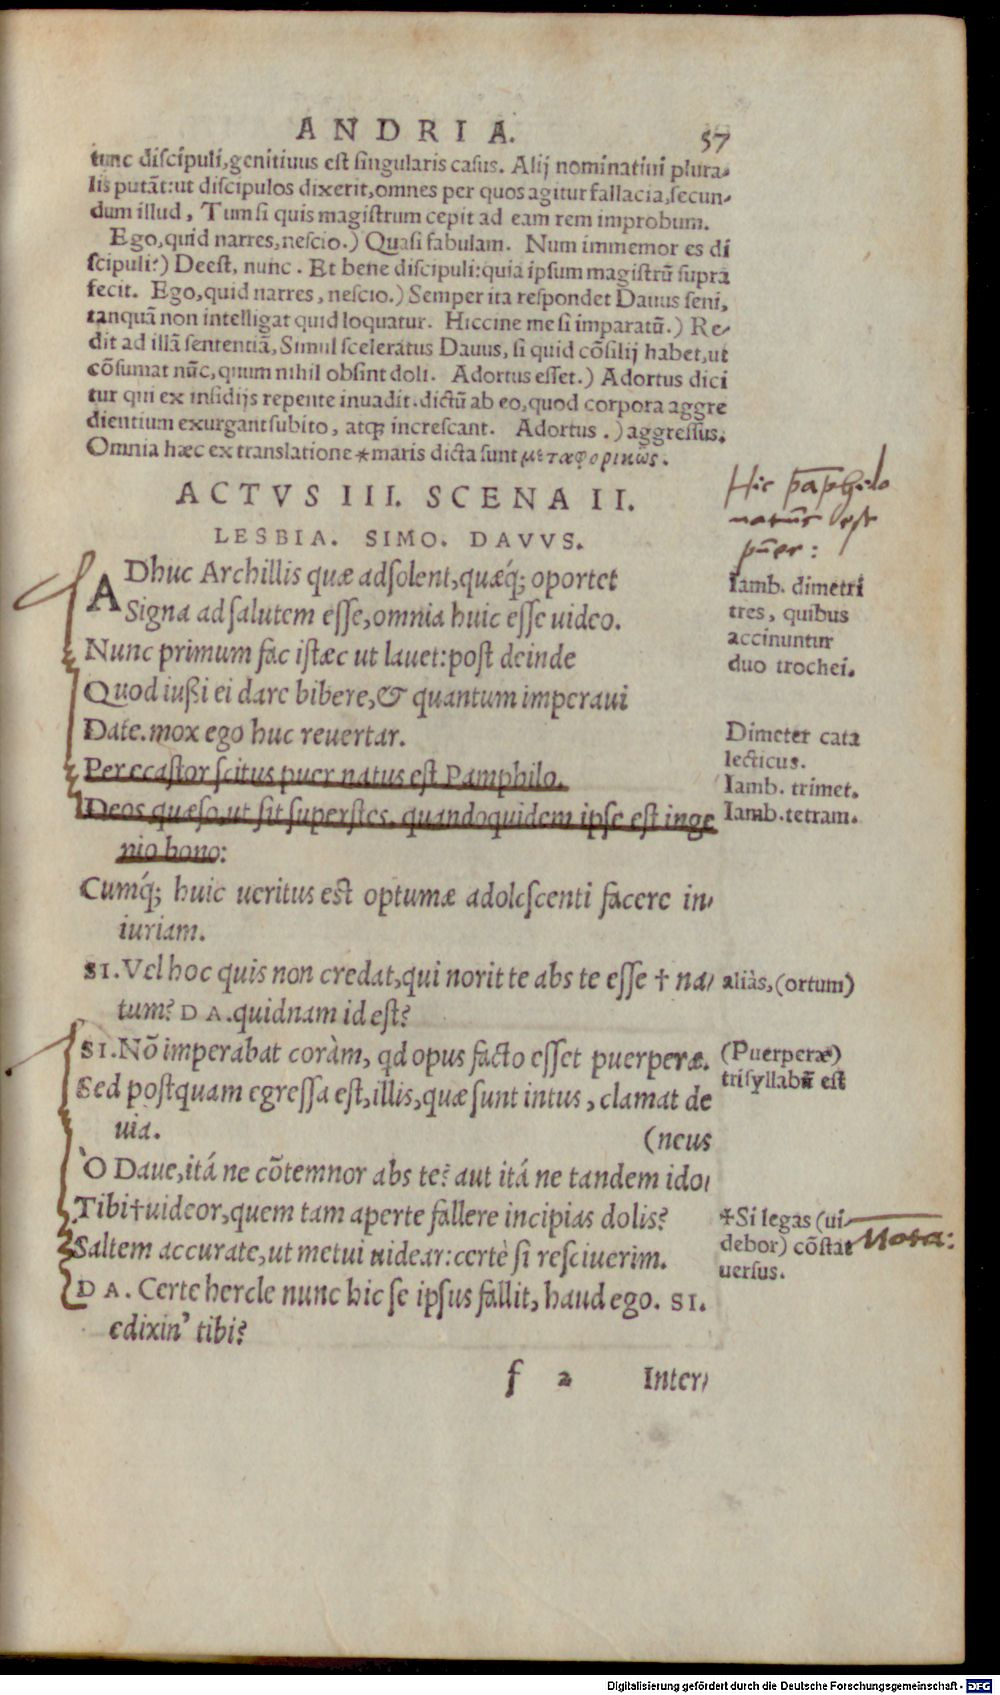 ANDRIA.
57
tunc discipuli, genitiuus est singularis casus. Alij nominatiui plura-
lis putāt: ut discipulos dixerit, omnes per quos agitur fallacia, secun-
dum illud, Tum si quis magistrum cepit ad eam rem improbum.
Ego, quid narres, nescio.) Quasi fabulam. Num immemor es di
scipuli?) Deest, nunc. Et bene discipuli: quia ipsum magistrū supra
fecit. Ego, quid narres, nescio.) Semper ita respondet Dauus seni,
tanquā non intelligat quid loquatur. Hiccine me si imparatū.) Re-
dit ad illā sententiā, Simul sceleratus Dauus, si quid cōsilij habet, ut
cōsumat nūc, quum nihil obsint doli. Adortus esset.) Adortus dici
tur qui ex insidijs repente inuadit. dictū ab eo, quod corpora aggre
dientium exurgant subito, atq; increscant. Adortus.) aggressus.
Omnia hæc ex translatione * maris dicta sunt μεταφορικῶς.
ACTVS III. SCENA II.
LESBIA. SIMO. DAVVS.
Hic pāphilo
natus est
puer:
ADhuc Archillis quæ adsolent, quæq́; oportet
Signa ad salutem esse, omnia huic esse uideo.
Nunc primum fac istæc ut lauet: post deinde
Quod iußi ei dare bibere, & quantum imperaui
Date. mox ego huc reuertar.
Per ecastor scitus puer natus est Pamphilo.
Deos quæso, ut sit superstes. quandoquidem ipse est inge
nio bono:
Cumq́; huic ueritus est optumæ adolescenti facere in-
iuriam.
SI. Vel hoc quis non credat, qui norit te abs te esse † na-
tum? DA. quidnam id est?
SI. Nō imperabat coràm, qd opus facto esset puerperæ.
Sed postquam egressa est, illis, quæ sunt intus, clamat de
uia.
(neus
O Daue, itá ne cōtemnor abs te? aut itá ne tandem ido-
Tibi † uideor, quem tam aperte fallere incipias dolis?
Saltem accurate, ut metui uidear: certè si resciuerim.
DA. Certe hercle nunc hic se ipsus fallit, haud ego. SI.
edixin' tibi?
f 2 Inter-
Iamb. dimetri
tres, quibus
accinuntur
duo trochei.
Dimeter cata
lecticus.
Iamb. trimet.
Iamb. tetram.
aliàs, (ortum)
(Puerperæ)
trisyllabū est
† Si legas (ui-
debor) cōstat
uersus.
Nota:
Digitalisierung gefördert durch die Deutsche Forschungsgemeinschaft - DFG